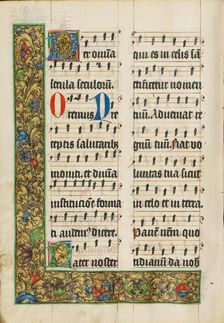 Per omnia
secula seculorum.
Oremus Pre
ceptis salutarib
moniti et divina
institucione forma
ti audem9 dicere.
Pater noster
qui es in celis san
ctificetur nomen
tuum. Adveniat re
gnum tuum. Fiat vo
luntas tua sicut
in celo et in terra
Panem nrm quo
tidianum da nob